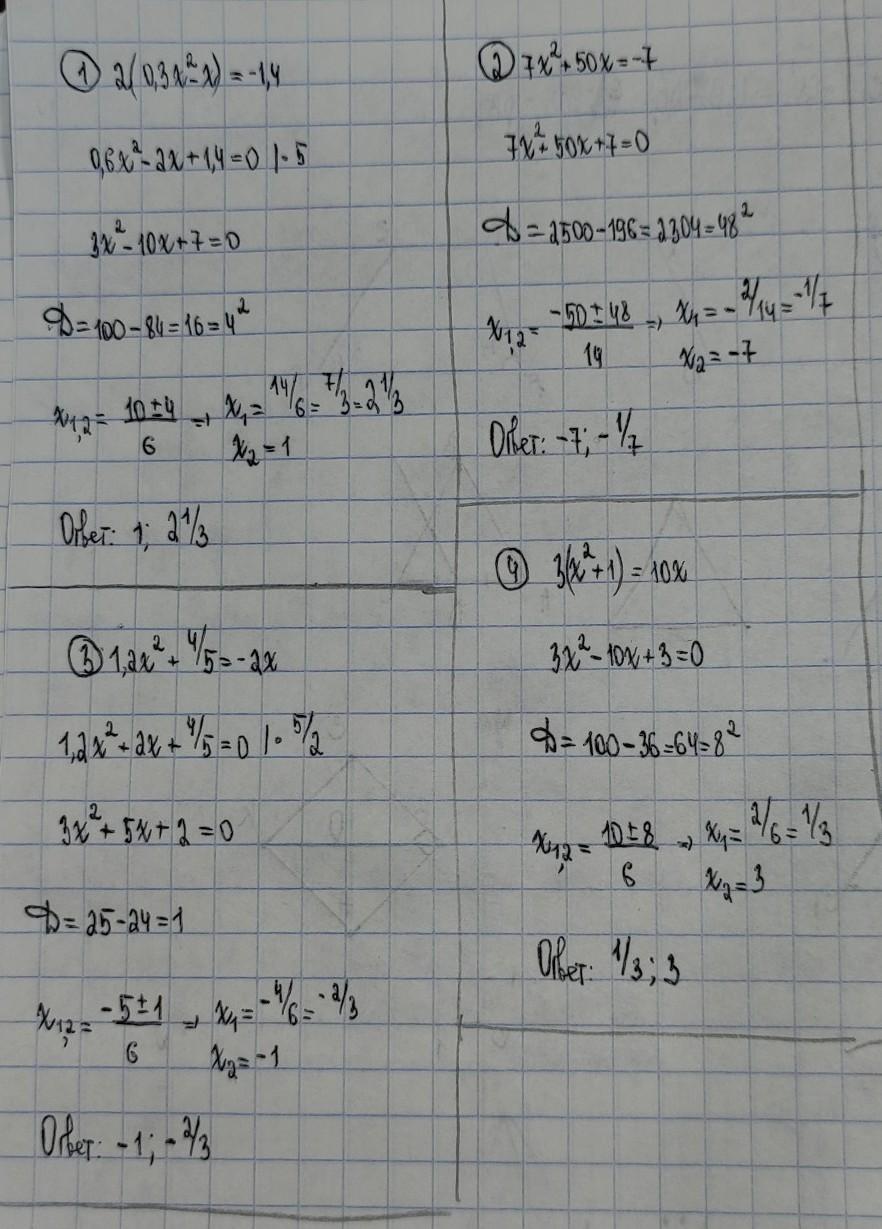 ① 2(0,3x²-x) = -1,4
0,6x²-2x+1,4=0 |·5
3x²-10x+7=0
D=100-84=16=4²
x₁,₂ = (10±4)/6 ⇒ x₁ = 14/6 = 7/3 = 2 1/3
x₂ = 1
Ответ: 1; 2 1/3
② 7x²+50x=-7
7x²+50x+7=0
D=2500-196=2304=48²
x₁,₂ = (-50±48)/14 ⇒ x₁ = -2/14 = -1/7
x₂ = -7
Ответ: -7; -1/7
③ 1,2x² + 4/5 = -2x
1,2x²+2x+4/5=0 |· 5/2
3x²+5x+2=0
D=25-24=1
x₁,₂ = (-5±1)/6 ⇒ x₁ = -4/6 = -2/3
x₂ = -1
Ответ: -1; -2/3
④ 3(x²+1) = 10x
3x²-10x+3=0
D=100-36=64=8²
x₁,₂ = (10±8)/6 ⇒ x₁ = 2/6 = 1/3
x₂ = 3
Ответ: 1/3; 3